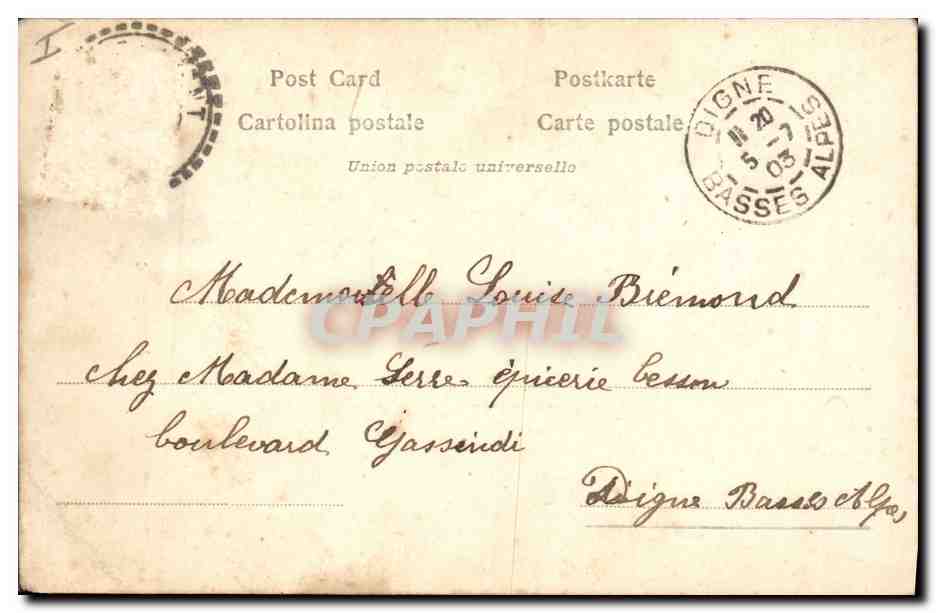 I
Post Card
Postkarte
Cartolina postale
Carte postale
Union postale universelle
DIGNE
20
5 -7
03
BASSES ALPES
CPAPHIL
Mademoiselle Louise Briémond
chez Madame Serre épicerie besson
boulevard Gassendi
Digne Basses Alpes